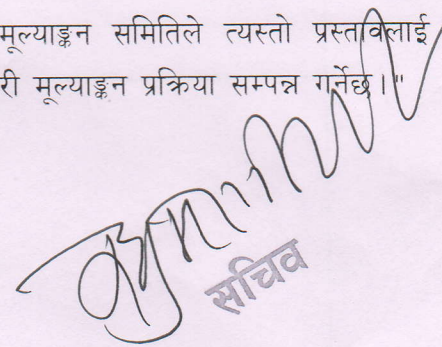 मूल्याङ्कन समितिले त्यस्तो प्रस्तावलाई
री मूल्याङ्कन प्रक्रिया सम्पन्न गर्नेछ।"
सचिव